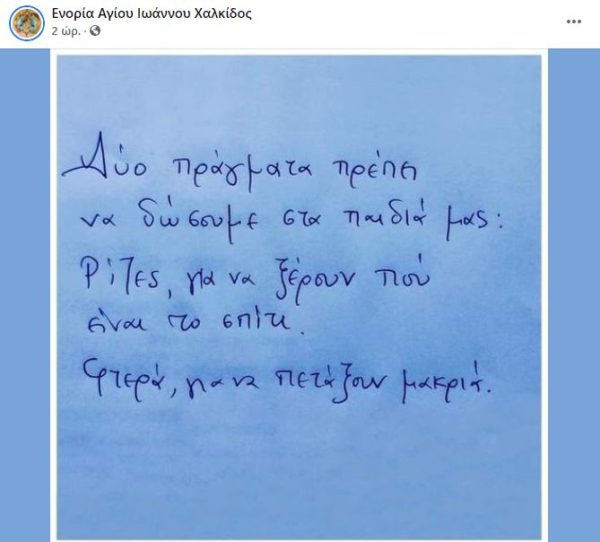 Ενορία Αγίου Ιωάννου Χαλκίδος
2 ώρ. ·
Δύο πράγματα πρέπει
να δώσουμε στα παιδιά μας:
Ρίζες, για να ξέρουν πού
είναι το σπίτι.
Φτερά, για να πετάξουν μακριά.